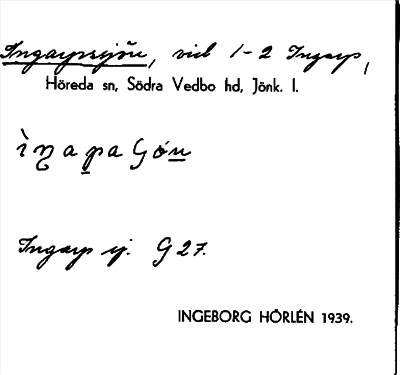 Ingarpssjön, vid 1-2 Ingarp,
Höreda sn, Södra Vedbo hd, Jönk. l.
Ingarp sj. G 27.
INGEBORG HÖRLÉN 1939.